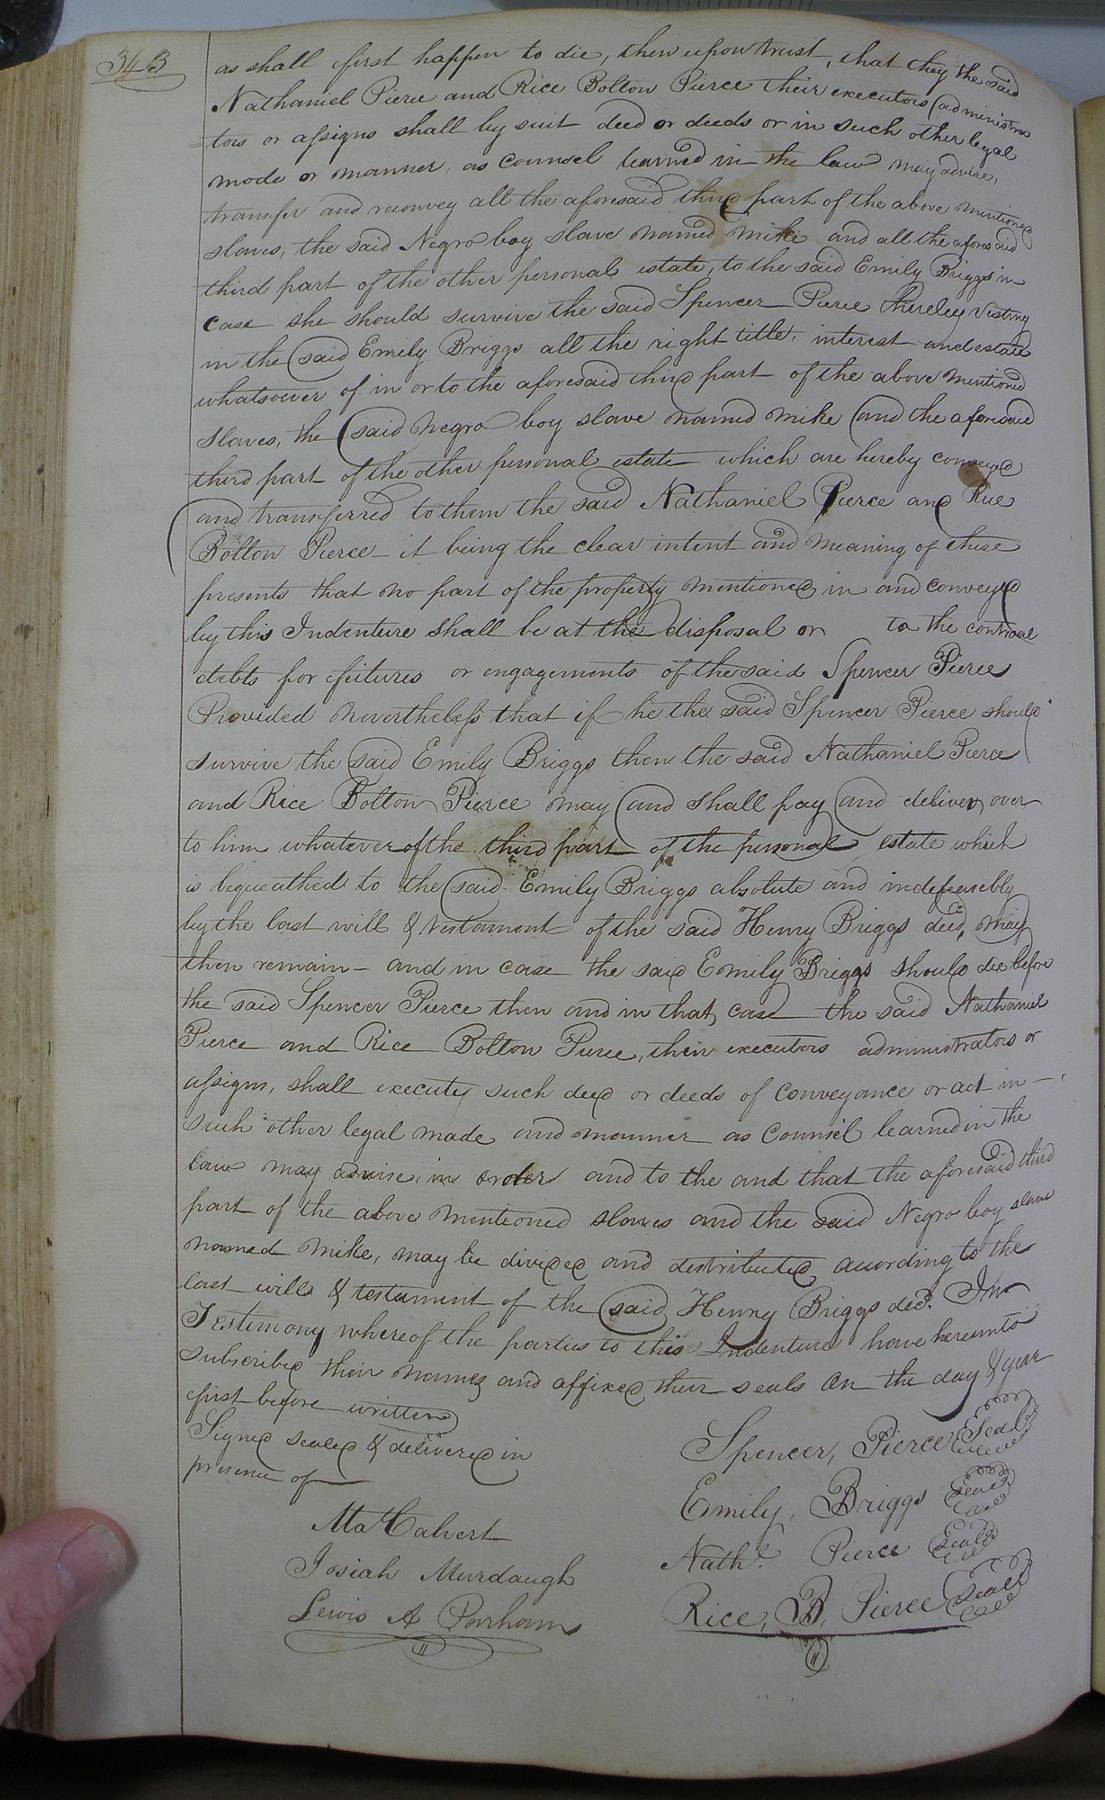 343
as shall first happen to die, then upon trust, that they the said
Nathaniel Pierce and Rice Bolton Pierce their executors administra
tors or assigns shall by suit deed or deeds or in such other legal
mode or manner, as counsel learned in the law may advise,
transfer and reconvey all the aforesaid third part of the above mentioned
slaves, the said Negro boy slave named Mike and all the aforesaid
third part of the other personal estate, to the said Emily Briggs in
case she should survive the said Spencer Pierce thereby vesting
in the said Emily Briggs all the right title, interest and estate
whatsoever of in or to the aforesaid third part of the above mentioned
slaves, the said Negro boy slave named Mike and the aforesaid
third part of the other personal estate which are hereby conveyed
and transferred to them the said Nathaniel Pierce and Rice
Bolton Pierce - it being the clear intent and meaning of these
presents that no part of the property mentioned in and conveyed
by this Indenture shall be at the disposal or to the controul
debts forfeitures or engagements of the said Spencer Pierce
Provided nevertheless that if he the said Spencer Pierce should
survive the said Emily Briggs then the said Nathaniel Pierce
and Rice Bolton Pierce may and shall pay and deliver over
to him whatever of the third part of the personal estate which
is bequeathed to the said Emily Briggs absolute and indefeasibly
by the last will & testament of the said Henry Briggs decd, may
then remain - and in case the said Emily Briggs should die before
the said Spencer Pierce then and in that case the said Nathaniel
Pierce and Rice Bolton Pierce, their executors administrators or
assigns, shall execute such deed or deeds of conveyance or act in -
such other legal made and manner as Counsel learned in the
law may advise, in order and to the and that the aforesaid third
part of the above mentioned slaves and the said Negro boy slave
named Mike, may be divided and distributed according to the
last will & testament of the said Henry Briggs decd. In
Testimony whereof the parties to this Indenture have hereunto
subscribed their names and affixed their seals on the day & year
first before written
Signed sealed & delivered in
presence of
Spencer, Pierce Seal
Emily, Briggs Seal
Ma Calvert
Nathl. Pierce Seal
Josiah Murdaugh
Rice, B, Pierce Seal
Lewis A Parham